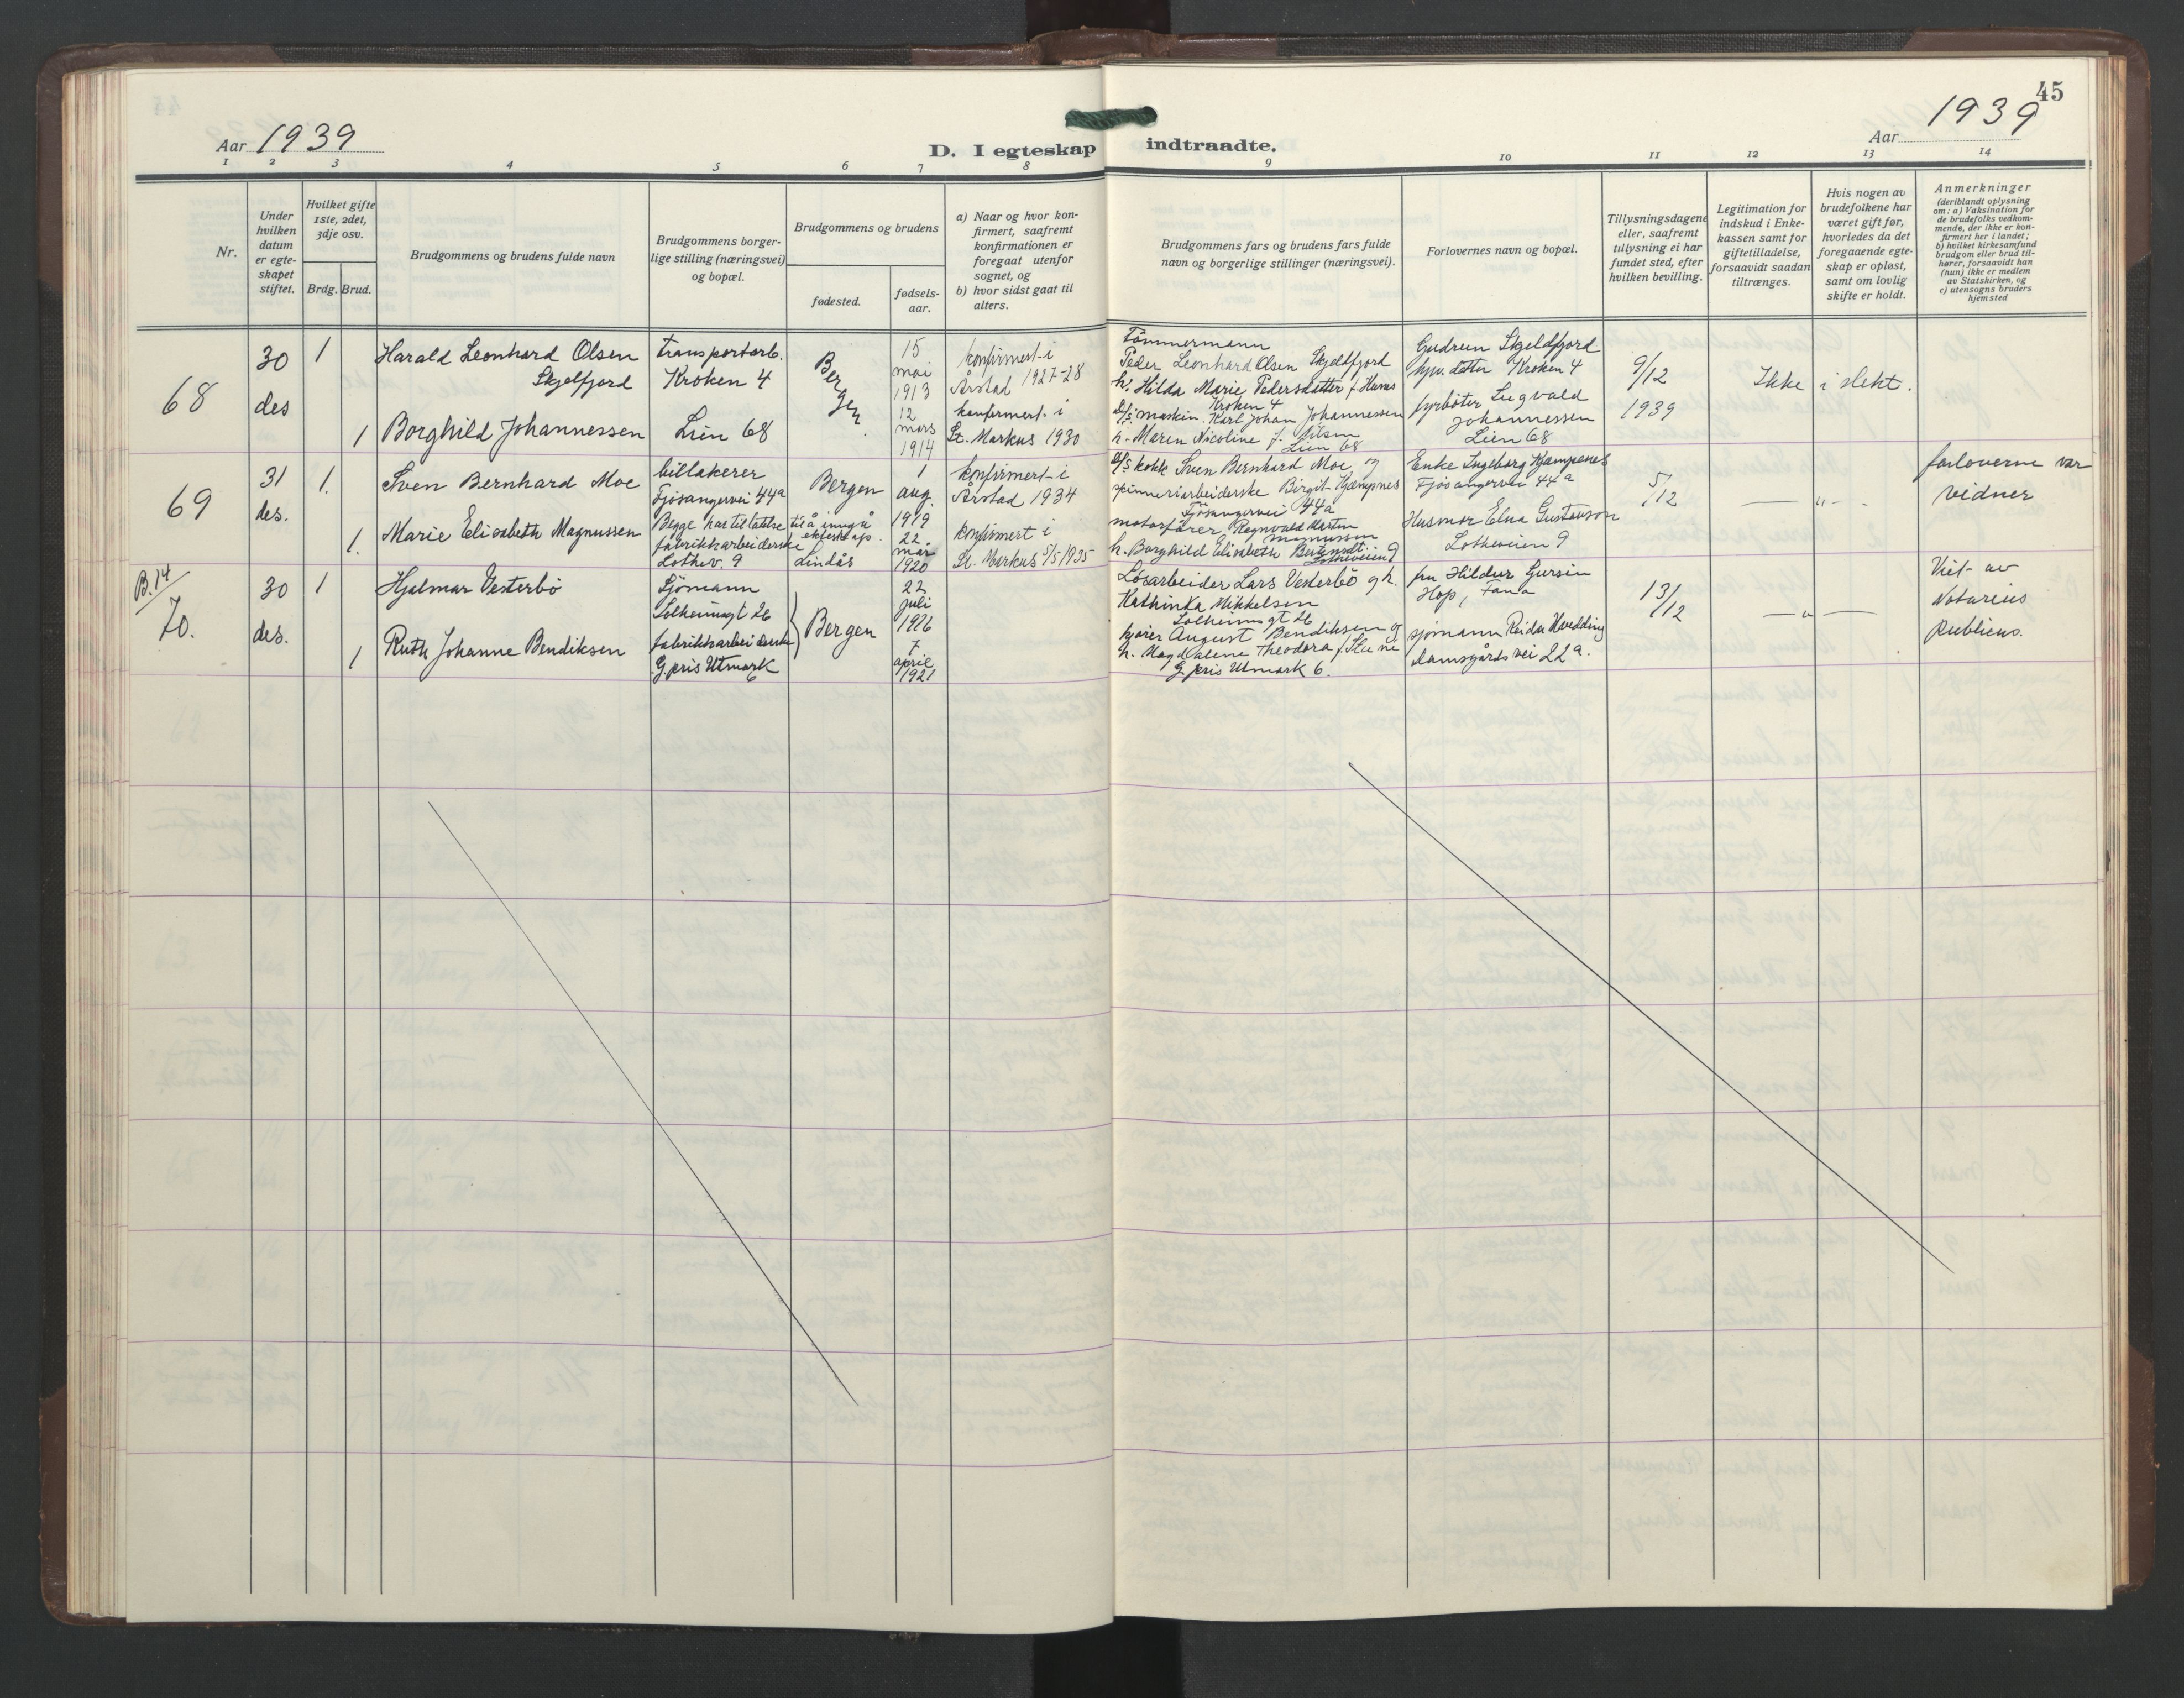 45
Aar 1939
D. I egteskap indtraadte.
Aar 1939
1 2 3 4 5 6 7 8 9 10 11 12 13 14
Nr.
Under hvilken datum er egteskapet stiftet.
Hvilket gifte 1ste, 2det, 3dje osv.
Brdg. Brud.
Brudgommens og brudens fulde navn
Brudgommens borgerlige stilling (næringsvei) og bopæl.
Brudgommens og brudens
fødested.
fødselsaar.
a) Naar og hvor konfirmert, saafremt konfirmationen er foregaat utenfor sognet, og
b) hvor sidst gaat til alters.
Brudgommens fars og brudens fars fulde navn og borgerlige stillinger (næringsvei).
Forlovernes navn og bopæl.
Tillysningsdagene eller, saafremt tillysning ei har fundet sted, efter hvilken bevilling.
Legitimation for indskud i Enkekassen samt for giftetilladelse, forsaavidt saadan tiltrænges.
Hvis nogen av brudefolkene har været gift før, hvorledes da det foregaaende egteskap er opløst, samt om lovlig skifte er holdt.
Anmerkninger
(deriblandt oplysning om: a) Vaksination for de brudefolks vedkommende, der ikke er konfirmert her i landet;
b) hvilket kirkesamfund brudgom eller brud tilhører, forsaavidt han (hun) ikke er medlem av Statskirken, og
c) utensogns bruders hjemsted
68
30 des
1
Harald Leonhard Olsen
Skjelfjord
transportarb.
Kroken 4
Bergen
15
mai
1913
konfirmert i
Årstad 1927-28
Tömmermann
Peder Leonhard Olsen Skjeldfjord
h. Hilda Marie Pedersdatter f. Huns
Kroken 4
Gudrun Skjeldfjord
hjv. datter Kroken 4
9/12
1939
Ikke i slekt.
1
Borghild Johannessen
Lien 68
12
mars
1914
konfirmert i
St. Markus 1930
D/s maskin. Karl Johan Johannessen
h. Maren Nicoline f. Nilsen
Lien 68
fyrböter Sigvald
Johannessen
Lien 68
69
31
des.
1.
Sven Bernhard Moe
billakerer
Fjösangervei 44a
Bergen
1
aug.
1919
konfirmert i
Årstad 1934
D/s kokk Sven Bernhard Moe og
spinneriarbeiderske Birgit Kjæmpnes
Fjösangervei 44a
Enke Ingeborg Kjæmpenes
Fjösangervei 44a
5/12
— " —
forloverne var
vidner
Begge har tillatelse til å inngå
ekteskap
1.
Marie Elisabeth Magnussen
fabrikkarbeiderske
Lothev. 9
Lindås
22
mar
1920
konfirmert i
St. Markus 5/5 1935
motorfører Ragnvald Marten
Magnussen
h. Borghild Elisabeth Berntsdtr.
Lotheveien 9
Husmor Elna Gustavson
Lotheveien 9
B. 14
70.
30
des.
1
Hjalmar Vesterbö
Sjömann
Solheimsgt 26
Bergen
22
juli
1916
Lösarbeider Lars Vesterbö og h.
Kathinka Mikkelsen
Solheimsgt 26
fru Hildur Gursin
Hop, Fana
13/12
— " —
Viet av
Notarius
Publicus.
1
Ruth Johanne Bendiksen
fabrikkarbeiderske
G. pris Utmark
6
7
april
1921
kjörer August Bendiksen og
h. Magdalene Theodora f. Stene
G. pris Utmark 6.
sjømann Reidar Hvedding
Damsgårdsvei 22a.